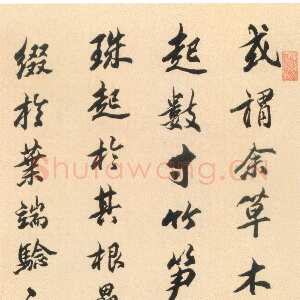 或謂余草木
起數寸竹笋
珠起於其根
綴於葉端驗
Shufawang.cn